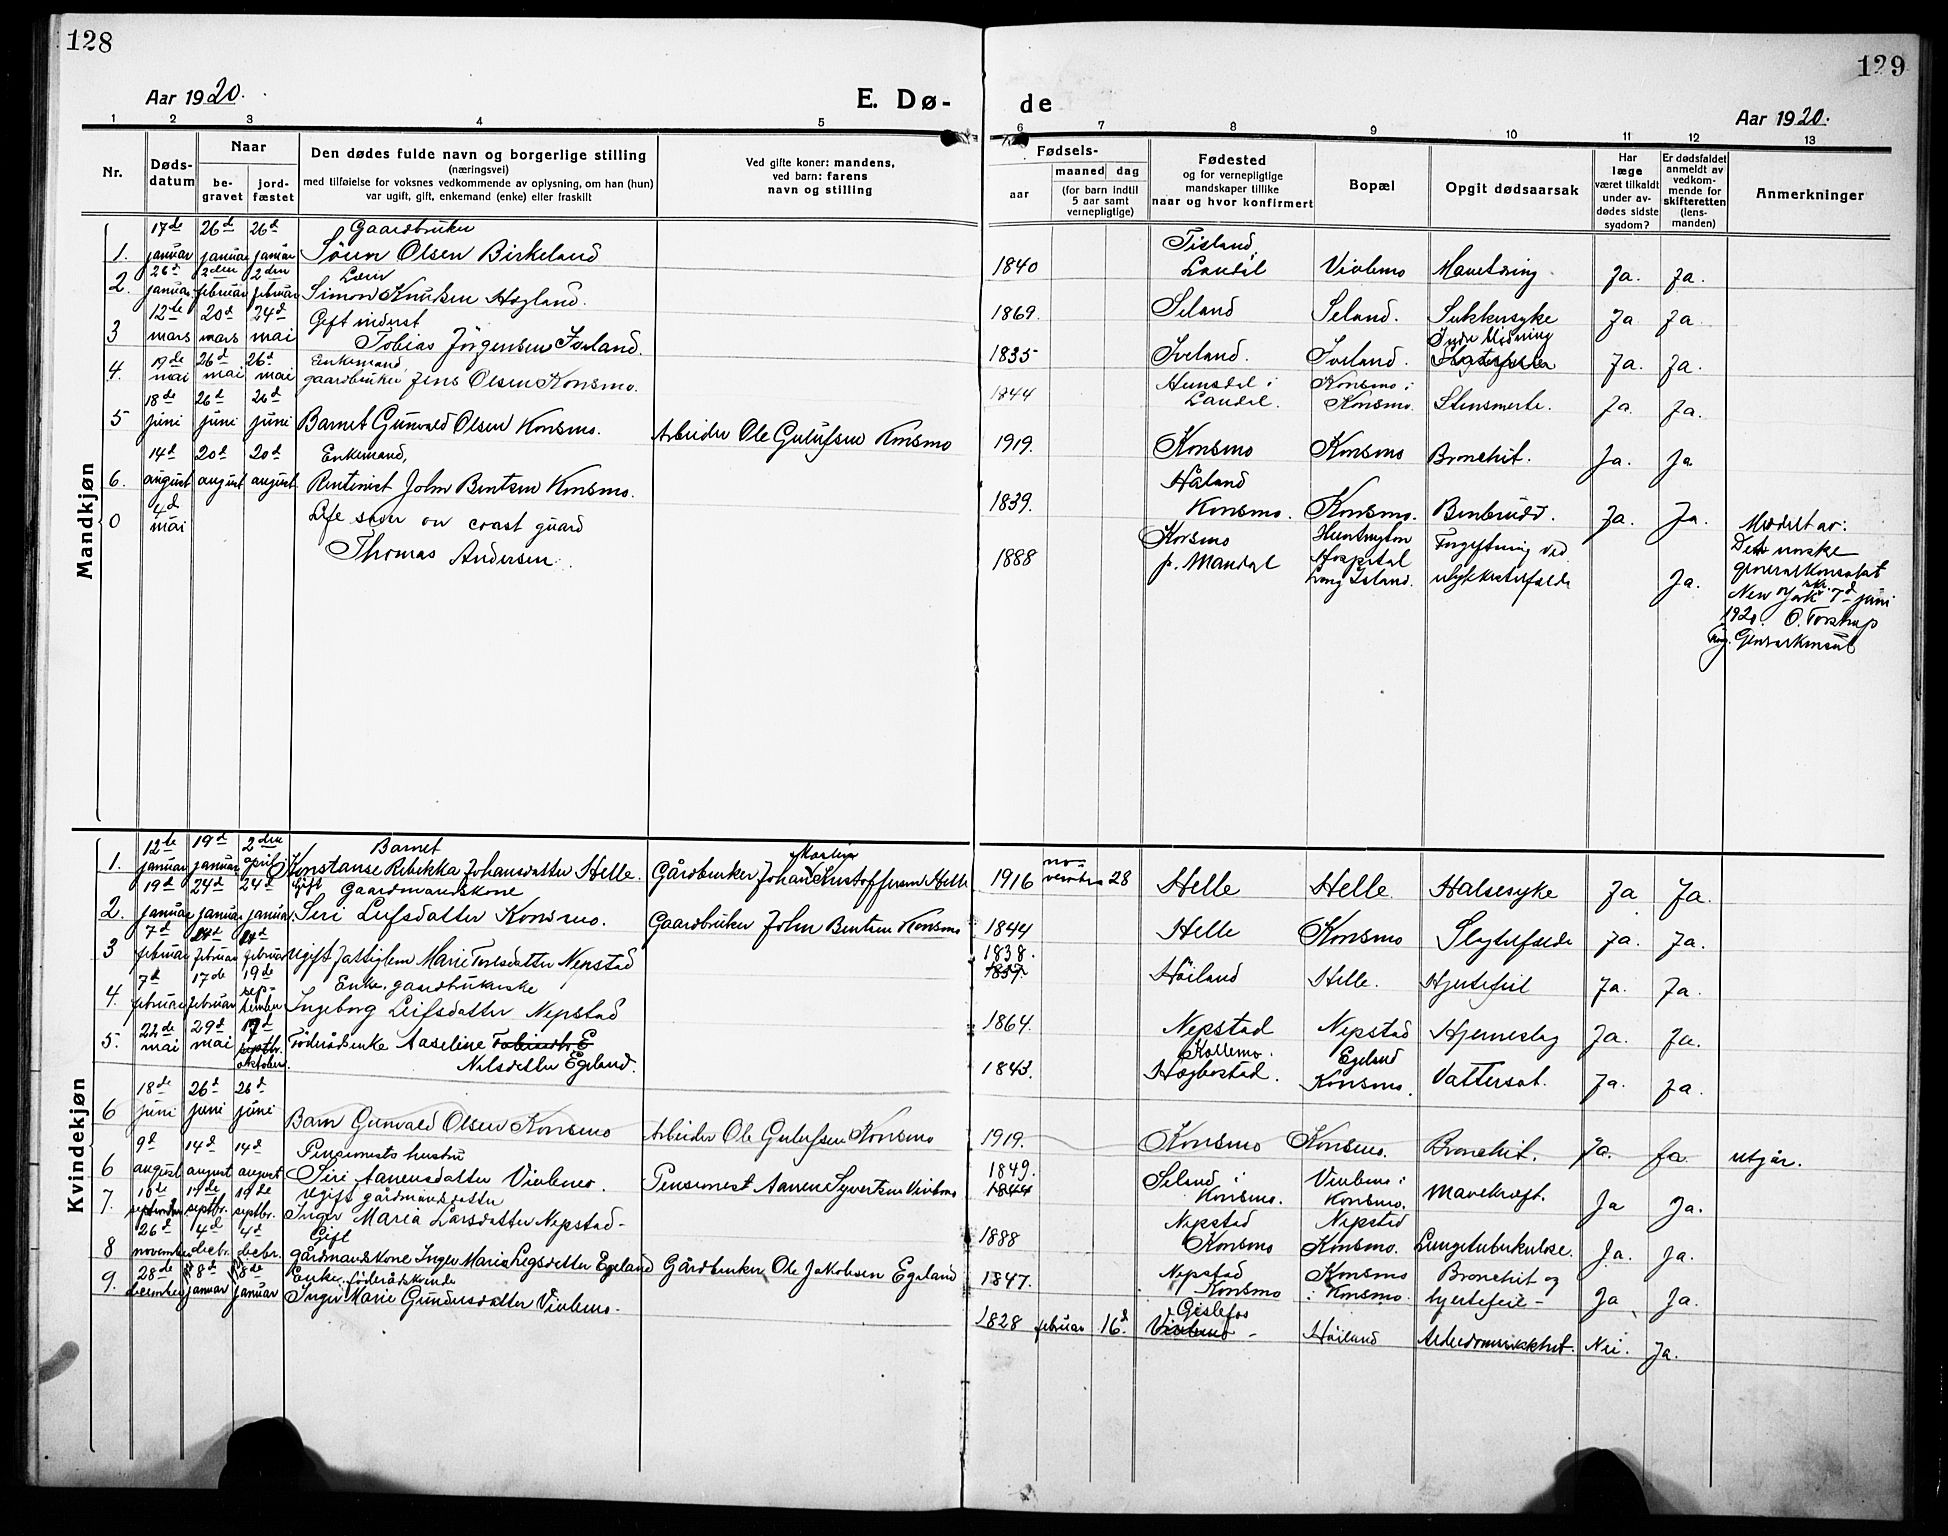 128
129
Aar 1920.
E. Dø-
de
Aar 1920.
1 2 3 4 5 6 7 8 9 10 11 12 13
Nr.
Døds-
datum
Naar
be-
gravet
jord-
fæstet
Den dødes fulde navn og borgerlige stilling
(næringsvei)
med tilføielse for voksnes vedkommende av oplysning, om han (hun)
var ugift, gift, enkemand (enke) eller fraskilt
Ved gifte koner: mandens,
ved barn: farens
navn og stilling
Fødsels-
aar
maaned dag
(for barn indtil
5 aar samt
vernepligtige)
Fødested
og for vernepligtige
mandskaper tillike
naar og hvor konfirmert
Bopæl
Opgit dødsaarsak
Har
læge
været tilkaldt
under av-
dødes sidste
sygdom?
Er dødsfaldet
anmeldt av
vedkom-
mende for
skifteretten
(lens-
manden)
Anmerkninger
Mandkjøn
1. 17de januar 26d januar 26d januar Gaardbruker
Søren Olsen Birkeland 1840 Laudal Vivlemo Ja. Ja.
2. 26d januar 2den februar 2den februar
Simon Knutsen Høgland. 1869. Seland Seland. Sukkersyke Ja Ja.
3 12te mars 20d mars 24d mai Gift inderst
Tobias Jörgensen Iveland. 1835 Iveland. Ivland. Indre blödning Ja. Ja.
4. 19de mai 26d mai 26d mai Enkemand,
gaardbruker Jens Olsen Konsmo. 1844 i Laudal. Konsmo i Konsmo. Ja. Ja.
5 18de juni 26d juni 26d juni
Barnet Gunvald Olsen Konsmo. Arbeider Ole Gulufsen Konsmo 1919. Konsmo Konsmo Bronchit. Ja. Ja
6. 14d august 20d august 20d august Enkemand,
Rentenist John Bentsen Konsmo. 1839. Håland Konsmo. Konsmo. Benbrudd. Ja. Ja.
0 4d mai Life saver on coast guard
Thomas Andersen. 1888 Konsmo p. Mandal Huntington Hospital Long Island. Forgiftning ved ulykkestilfælde Ja.
Meddelt av:
Det norske
generalkonsulat
New York skr. 7d juni
1920. O. Torstrup
fung. Generalkonsul
Kvindekjøn
1. 12te januar 19d januar 2den april Barnet
Konstanse Rebekka Johansdatter Helle. Gårdbruker Johan Martin Kristoffersen Helle 1916 november 28 Helle Helle. Halsesyke Ja Ja.
2. 19d januar 24d januar 24d januar Gift Gaardmandskone
Siri Leifsdatter Konsmo. Gaardbruker John Bentsen Konsmo 1844 Helle Konsmo Slagtilfælde Ja. Ja.
3 7d februar februar februar
Ugift Fattiglem Marie Terlsdatter Nepstad 1838. 1837. Höiland Helle. Hjertefeil Ja. Ja.
4. 7d februar 17de februar 19de september Enke, gaardbrukerske
Ingeborg Leifsdatter Nepstad 1864. Nepstad Nepstad Hjerneslag Ja. Ja.
5. 22de mai 29d mai septbr. oktober.
Föderådsenke Aaseline Tobiasdtr E
Nilsdatter Egeland. 1843. Kollemo. Hægbostad. Egeland Konsmo. Vattersot. Ja. Ja.
6 18de juni 26d juni 26d juni
Barn Gunvald Olsen Konsmo Arbeider Ole Gulufsen Konsmo 1919. Konsmo Konsmo. Bronchit. Ja. Ja. utgår.
6 9d august 14d august 14d august Pensionists hustru
Siri Aanensdatter Vivlemo. Pensionist Aanen Syvertsen Vivlemo 1849. 1844 Seland i Konsmo. Vivlemo i Konsmo. Mavekræft. Ja Ja.
7. septbr. septbr. Ugift gårdmandsdatter
Inger Maria Larsdatter Nepstad- 1888 Nepstad Konsmo Nepstad Konsmo. Lungetuberkulose. Ja. Ja.
8 26d november 4d decbr. 4d decbr. Gift
gårdmandskone Inger Marie Egeland Gårdbruker Ole Jakobsen Egeland 1847. Nepstad Konsmo Konsmo i Konsmo. Bronchit og hjertefeil- Ja Ja.
9. 28de december 8d januar 8de januar Enke, föderådskvinde
Inger Marie Gundersdatter Vivlemo. 1828 februar 16d. Gislefos Vivlemo - Höiland Alderdomssvakhet. Nei. Ja.